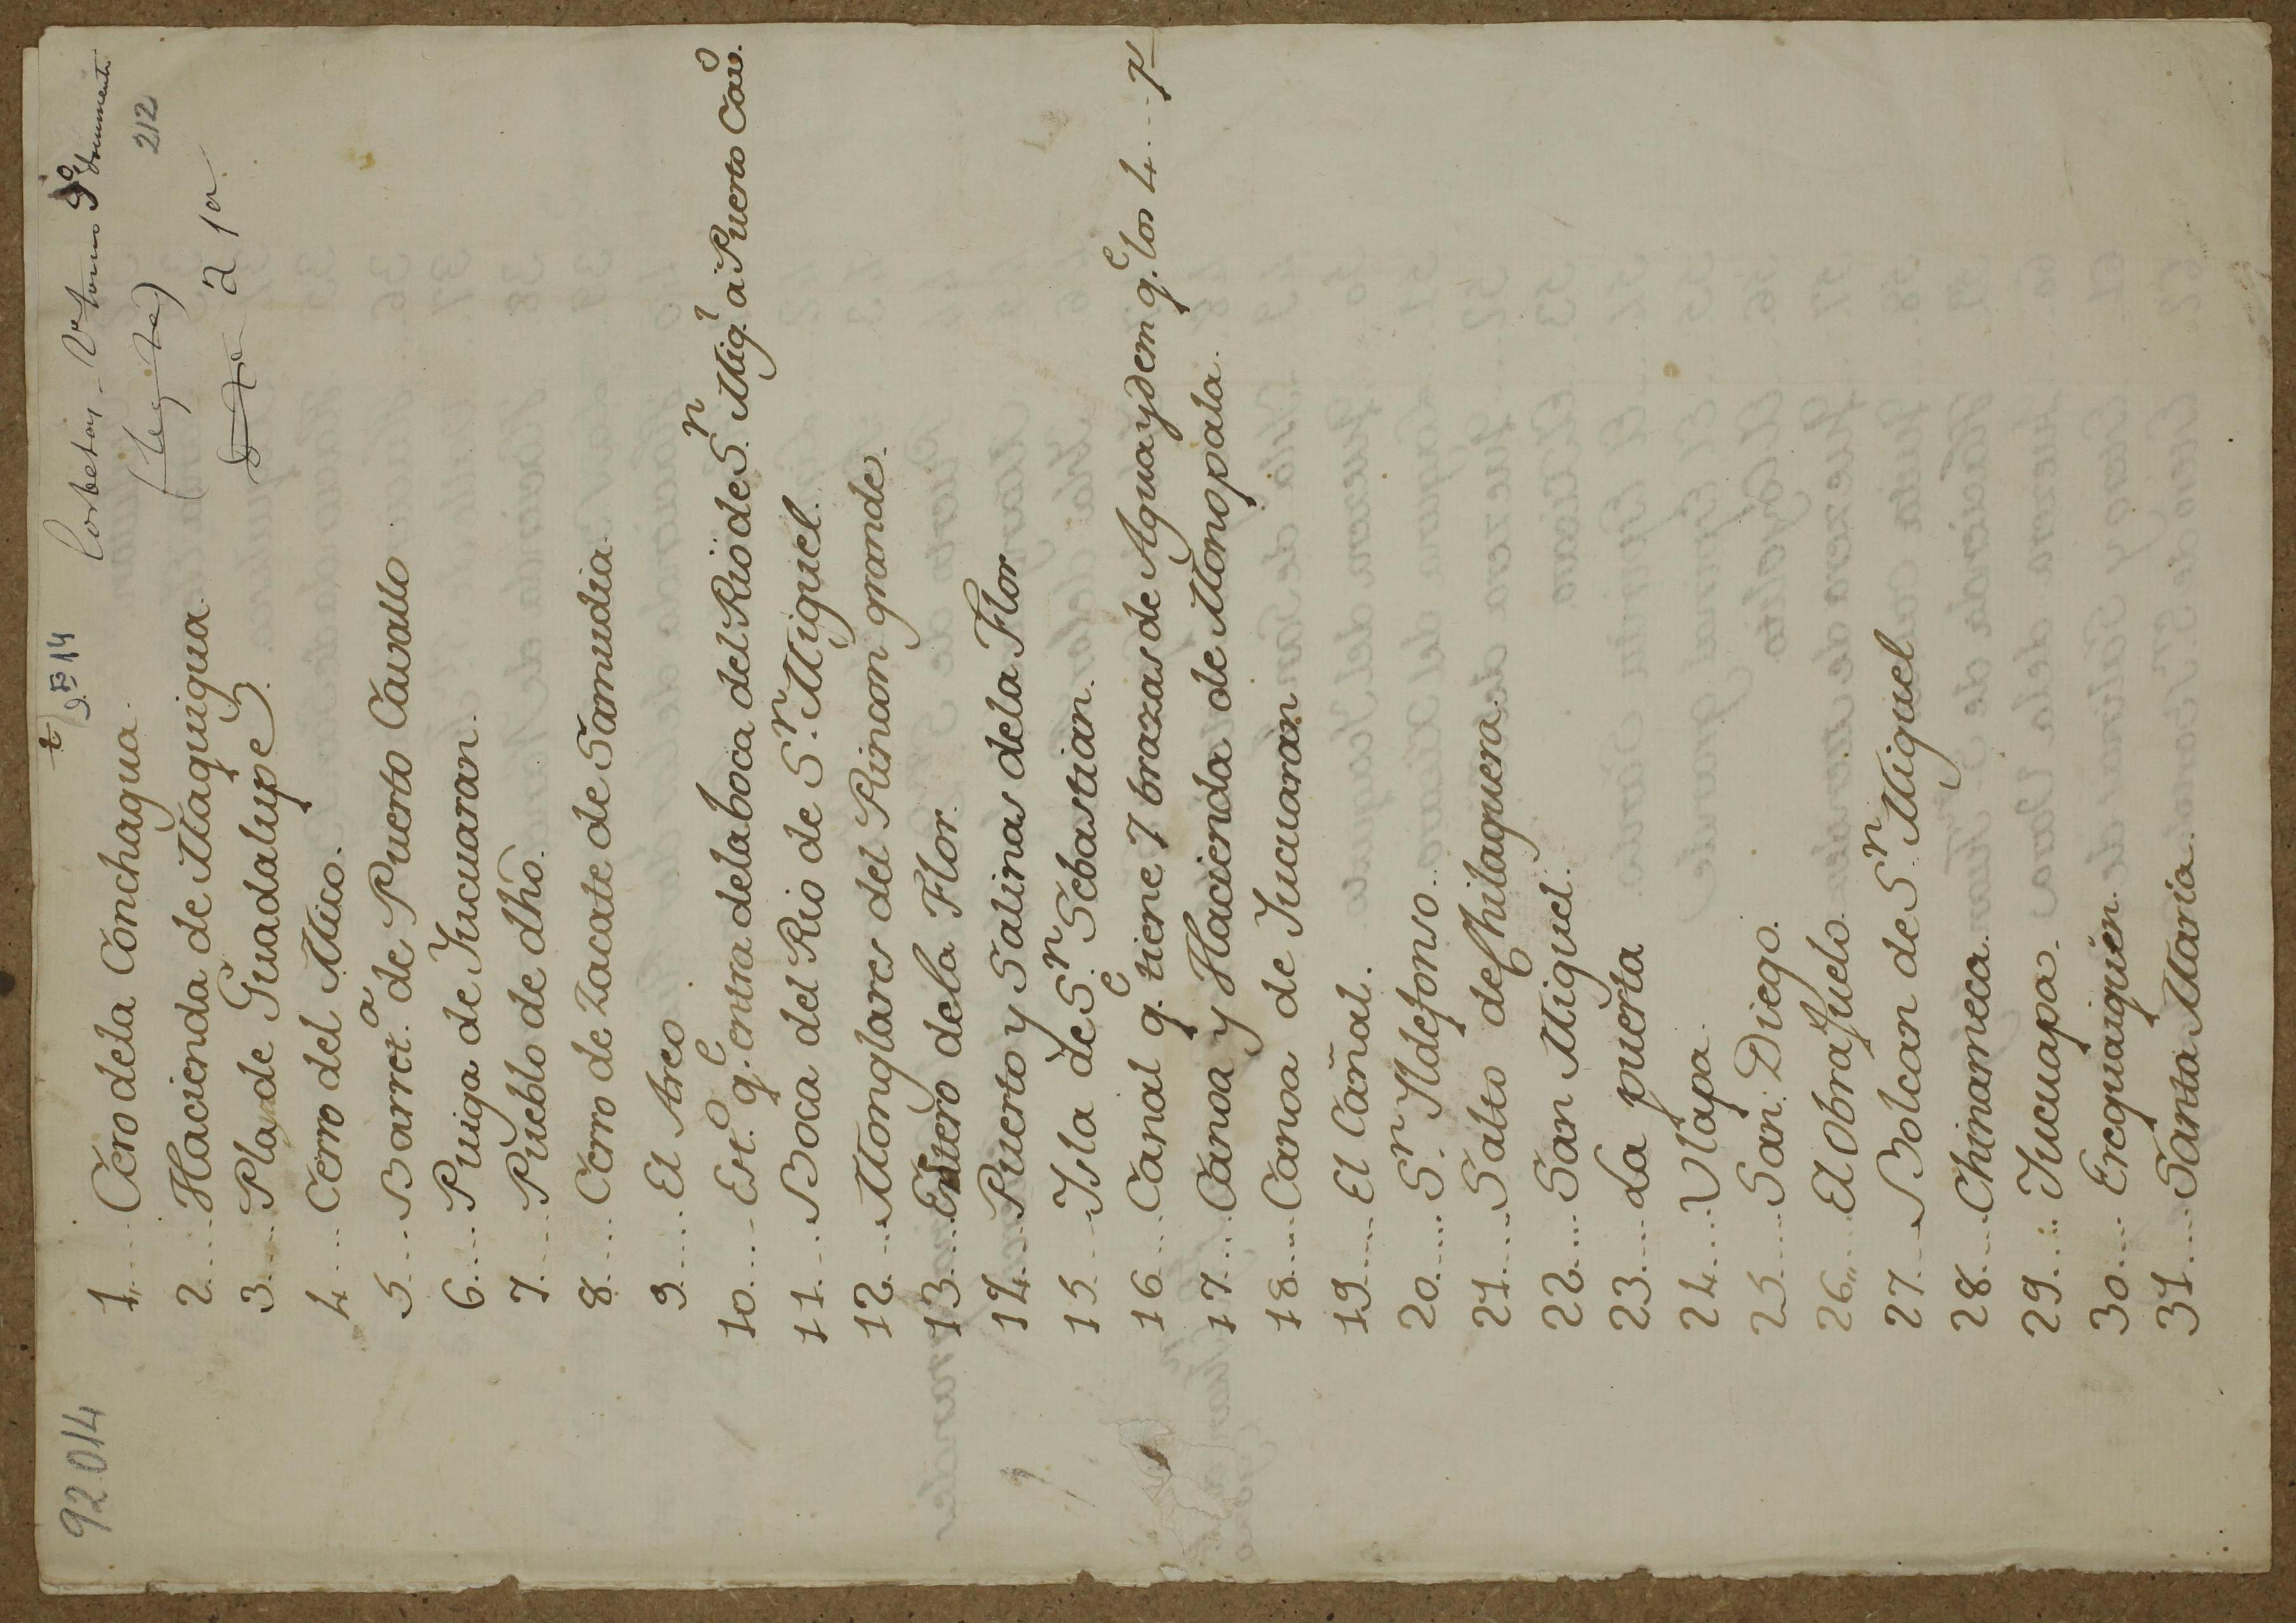 92014
J.B 14
Corbetas
212
(Leg
a 1a
1.... Cero dela Conchagua.
2.... Hacienda de Maquigua.
3.... Plade Guadalupe
4.... Cerro del Mico.
5.... Barret.ª de Puerto Cavallo
6.... Puiga de Jucuaran.
7.... Pueblo de dho.
8.... Cerro de Zacate de Samudia.
9.... El Arco
10.... Est.º q.e entra dela boca del Rio de S.n Mig.l a Puerto Cav.o
11.... Boca del Rio de S.n Miguel.
12.... Monglares del Rincon grande.
13.... Estero dela Flor.
14.... Puerto y Salinas dela Flor
15.... Isla de S.n Sebastian.
16.... Canal q.e tiene 7 brazas de Agua y dem q.e los 4
17.... Canoa y Hacienda de Monopala.
18.... Canoa de Jucuarán
19.... El Cañal.
20.... S.n Ildefonso.
21.... Salto de Chilaguera.
22.... San Miguel.
23.... La puerta
24.... Vlapa.
25.... San Diego.
26.... El Obrajuelo.
27.... Bolcan de S.n Miguel
28.... Chinameca.
29.... Jucuapa.
30.... Ereguaiquën.
31.... Santa Maria.